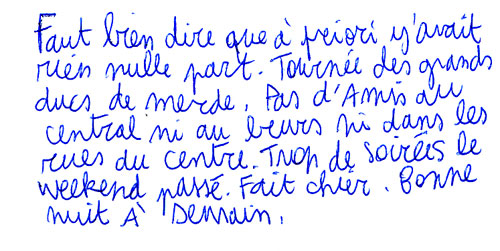 Faut bien dire que à priori y'avait
rien nulle part. Tournée des grands
ducs de merde. Pas d'Amis au
central ni au beurs ni dans les
rues du centre. Trop de soirées le
weekend passé. Fait chier. Bonne
nuit À Demain.